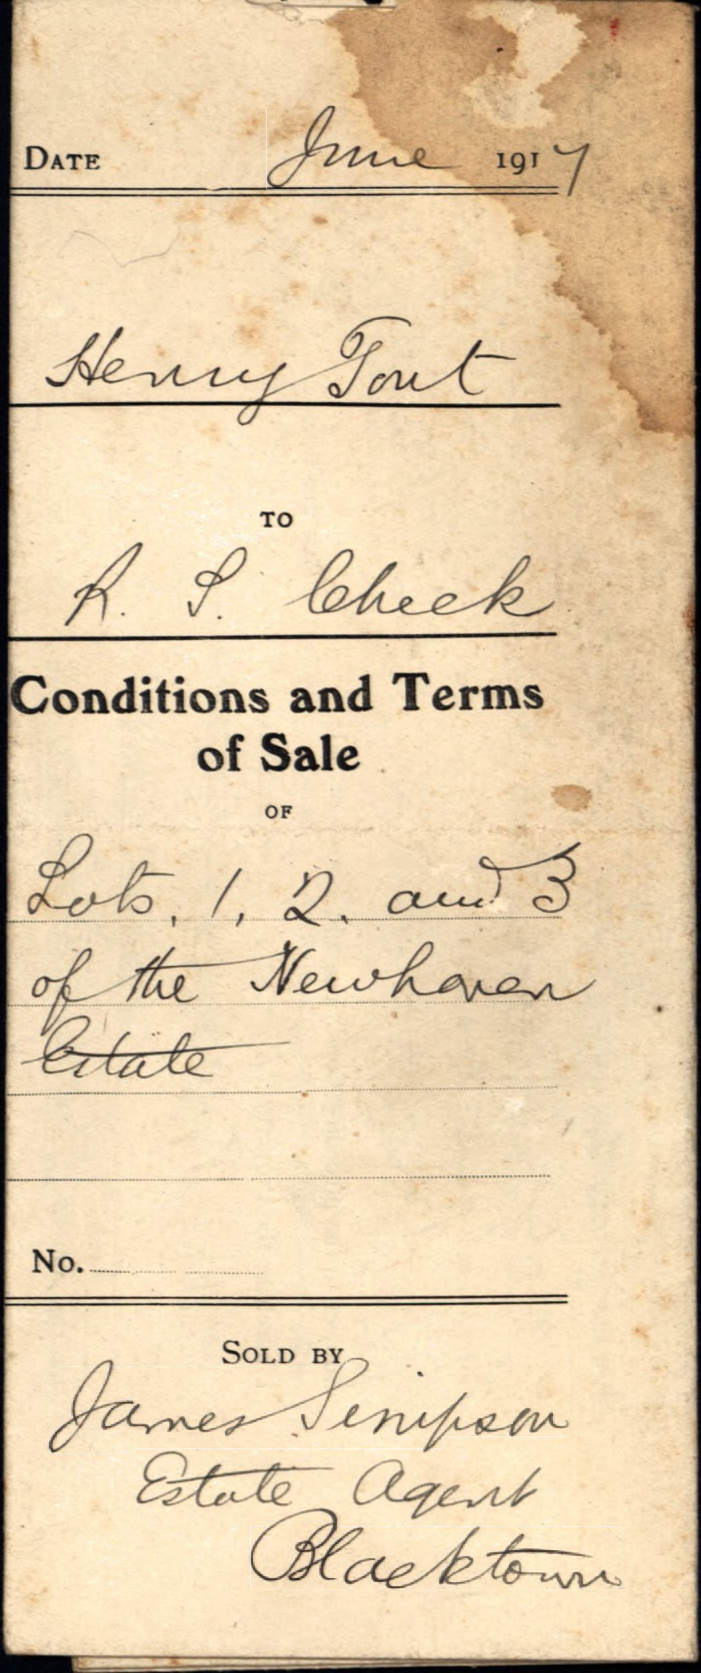 DATE June 1917
Henry Tout
TO
R. S. Cheek
Conditions and Terms
of Sale
OF
Lots, 1, 2, and 3
of the Newhaven
Estate
No.
SOLD BY
James Simpson
Estate Agent
Blacktown